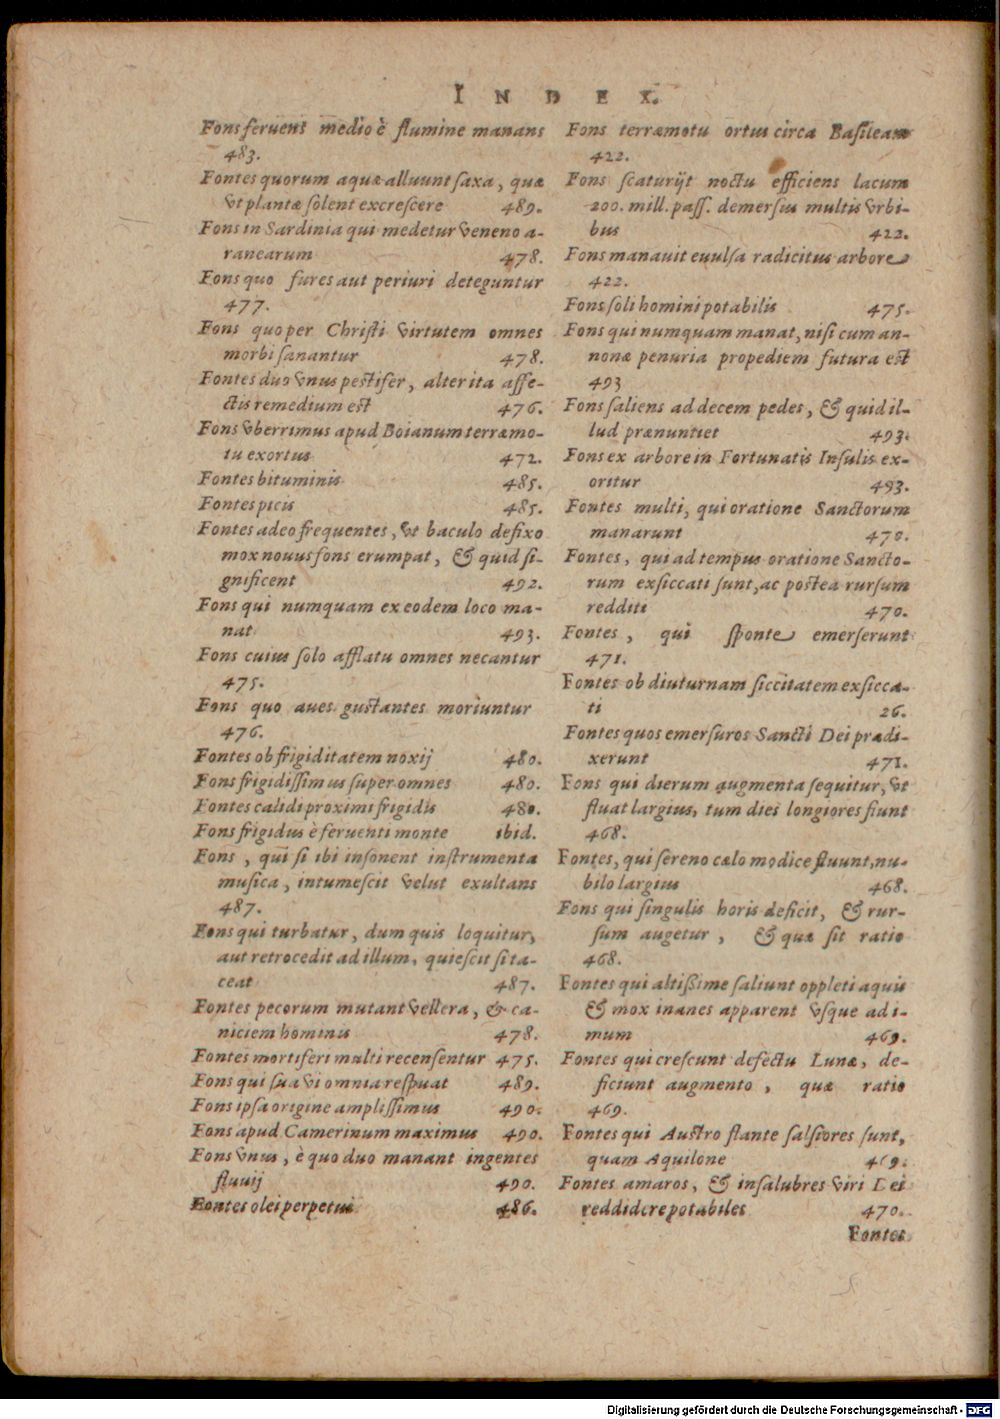 INDEX.
Fons feruens medio è flumine manans
483.
Fontes quorum aquæ alluunt saxa, quæ
vt plantæ solent excrescere 489.
Fons in Sardinia qui medetur veneno a-
ranearum 478.
Fons quo fures aut periuri deteguntur
477.
Fons quo per Christi virtutem omnes
morbi sanantur 478.
Fontes duo vnus pestifer, alter ita affe-
ctis remedium est 476.
Fons vberrimus apud Boianum terræmo-
tu exortus 472.
Fontes bituminis 485.
Fontes picis 485.
Fontes adeo frequentes, vt baculo defixo
mox nouus fons erumpat, & quid si-
gnificent 492.
Fons qui numquam ex eodem loco ma-
nat 493.
Fons cuius solo afflatu omnes necantur
475.
Fons quo aues gustantes moriuntur
476.
Fontes ob frigiditatem noxij 480.
Fons frigidissimus super omnes 480.
Fontes calidi proximi frigidis 480.
Fons frigidus è feruenti monte ibid.
Fons, qui si ibi insonent instrumenta
musica, intumescit velut exultans
487.
Fons qui turbatur, dum quis loquitur,
aut retrocedit ad illum, quiescit si ta-
ceat 487.
Fontes pecorum mutant vellera, & ca-
niciem hominis 478.
Fontes mortiferi multi recensentur 475.
Fons qui sua vi omnia respuat 489.
Fons ipsa origine amplissimus 490.
Fons apud Camerinum maximus 490.
Fons vnus, è quo duo manant ingentes
fluuij 490.
Fontes olei perpetui 486.
Fons terræmotu ortus circa Basileam
422.
Fons scaturijt noctu efficiens lacum
200. mill. pass. demersus multis vrbi-
bus 422.
Fons manauit euulsa radicitus arbore
422.
Fons soli homini potabilis 475.
Fons qui numquam manat, nisi cum an-
nonæ penuria propediem futura est
493
Fons saliens ad decem pedes, & quid il-
lud prænuntiet 493.
Fons ex arbore in Fortunatis Insulis ex-
oritur 493.
Fontes multi, qui oratione Sanctorum
manarunt 470.
Fontes, qui ad tempus oratione Sancto-
rum exsiccati sunt, ac postea rursum
redditi 470.
Fontes, qui sponte emerserunt
471.
Fontes ob diuturnam siccitatem exsicca-
ti 26.
Fontes quos emersuros Sancti Dei prædi-
xerunt 471.
Fons qui dierum augmenta sequitur, vt
fluat largius, tum dies longiores fiunt
468.
Fontes, qui sereno cælo modice fluunt, nu-
bilo largius 468.
Fons qui singulis horis deficit, & rur-
sum augetur, & quæ sit ratio
468.
Fontes qui altissime saliunt oppleti aquis
& mox inanes apparent vsque ad i-
mum 469.
Fontes qui crescunt defectu Lunæ, de-
ficiunt augmento, quæ ratio
469.
Fontes qui Austro flante salsiores sunt,
quam Aquilone 469.
Fontes amaros, & insalubres viri Dei
reddidere potabiles 470.
Fontes
Digitalisierung gefördert durch die Deutsche Forschungsgemeinschaft - DFG